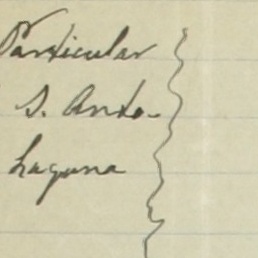 Particular
S. Anto-
Laguna